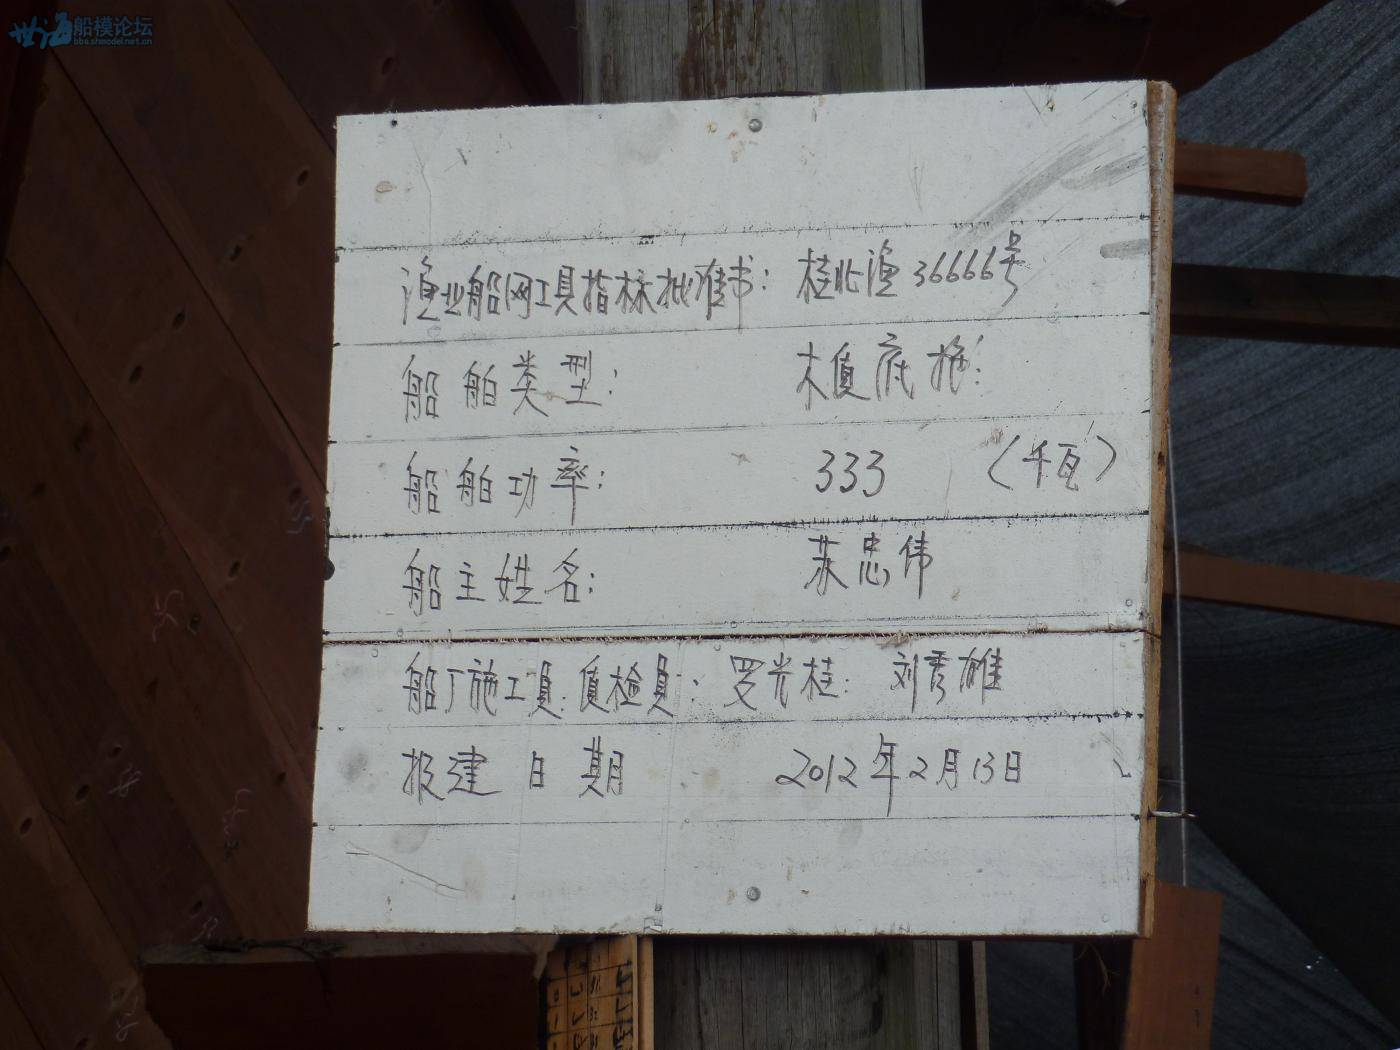 世海船模论坛
bbs.shmodel.net.cn
渔业船网工具指标批准书：桂北渔36666号
船舶类型： 木质底拖：
船舶功率： 333 （千瓦）
船主姓名： 苏忠伟
船厂施工员：质检员： 罗光桂： 刘秀雄
报建日期 2012年2月13日